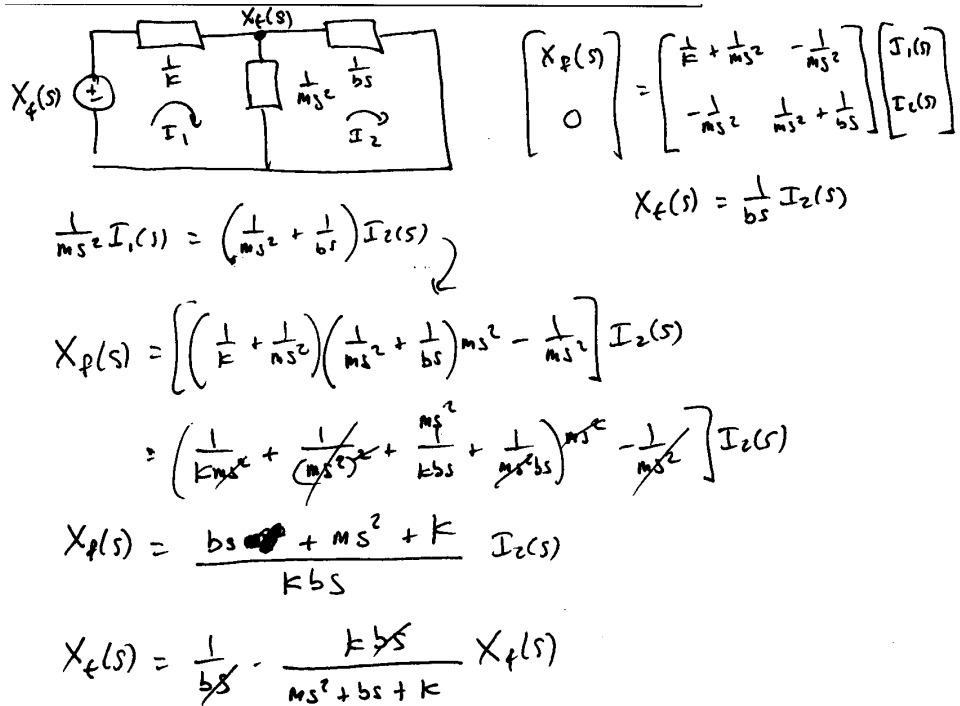 X_t(s)
1/k
1/ms²
1/bs
X_f(s)
+
I₁
I₂
[X_f(s); 0] = [1/k + 1/ms², -1/ms²; -1/ms², 1/ms² + 1/bs] [I₁(s); I₂(s)]
X_t(s) = 1/bs I₂(s)
1/ms² I₁(s) = (1/ms² + 1/bs) I₂(s)
X_f(s) = [(1/k + 1/ms²)(1/ms² + 1/bs) ms² - 1/ms²] I₂(s)
= (1/kms² + 1/(ms²)² + ms²/kbs + 1/ms²bs) ms² - 1/ms²] I₂(s)
X_f(s) = (bs + ms² + k)/kbs I₂(s)
X_t(s) = 1/bs · kbs/(ms² + bs + k) X_f(s)